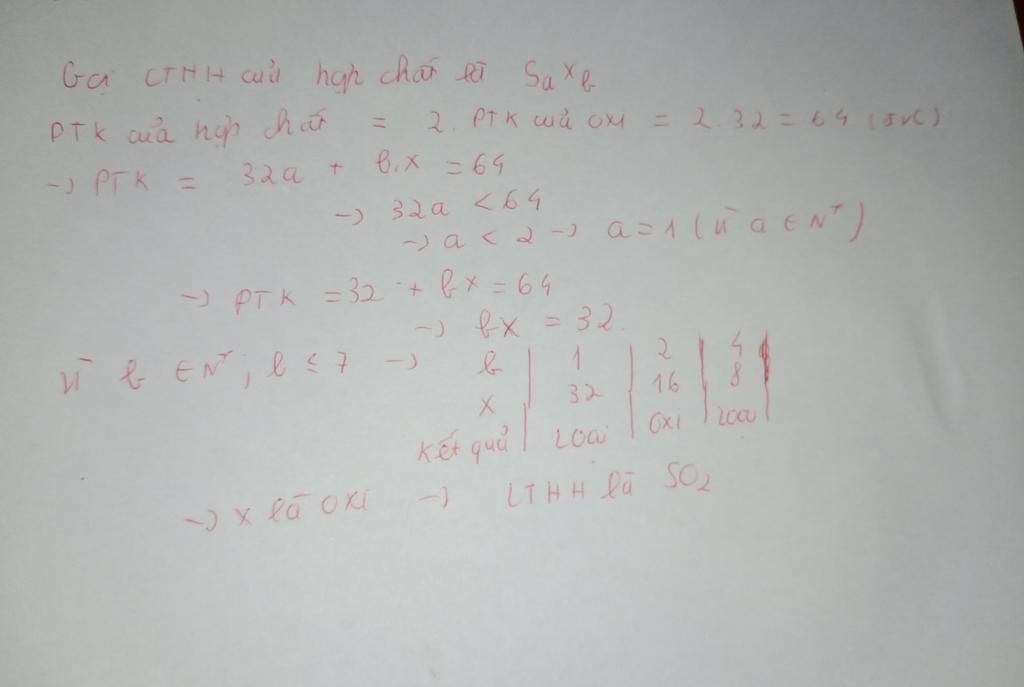 Gọi CTHH của hợp chất là SaXb
PTK của hợp chất = 2. PTK của oxi = 2.32 = 64 (đvC)
-> PTK = 32a + b.x = 64
-> 32a < 64
-> a < 2 -> a = 1 (vì a ∈ N*)
-> PTK = 32 + bx = 64
-> bx = 32.
Vì b ∈ N*; b ≤ 7 -> b | 1 | 2 | 4
x | 32 | 16 | 8
Kết quả | Loại | Oxi | Loại
-> X là Oxi -> CTHH là SO2